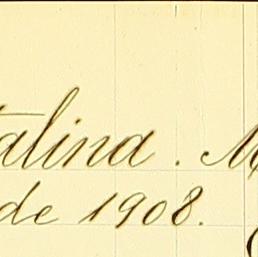 talina. M
de 1908.